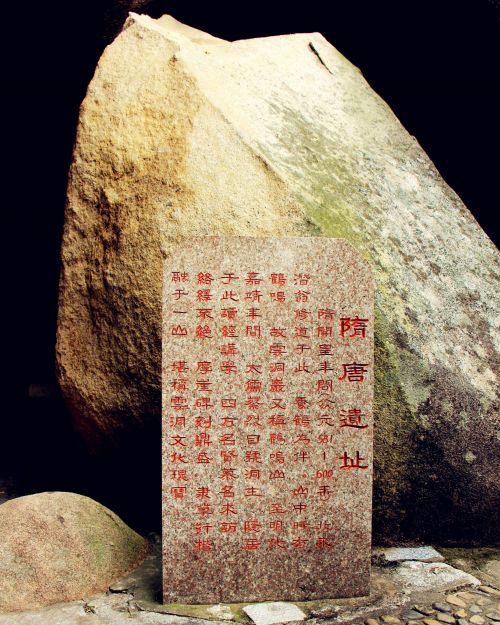 隋唐遺址
隋開皇年間公元581-600年
潛翁修道于此 養鶴為伴 山中時有
鶴鳴 故雲洞巖又稱鶴鳴山 至明代
嘉靖年間 大儒蔡烈自號洞主 隱居
于此讀經講學 四方名賢慕名來訪
絡繹不絕 摩崖碑刻鼎盛 隸草行楷
融于一山 堪稱雲洞文化瑰寶